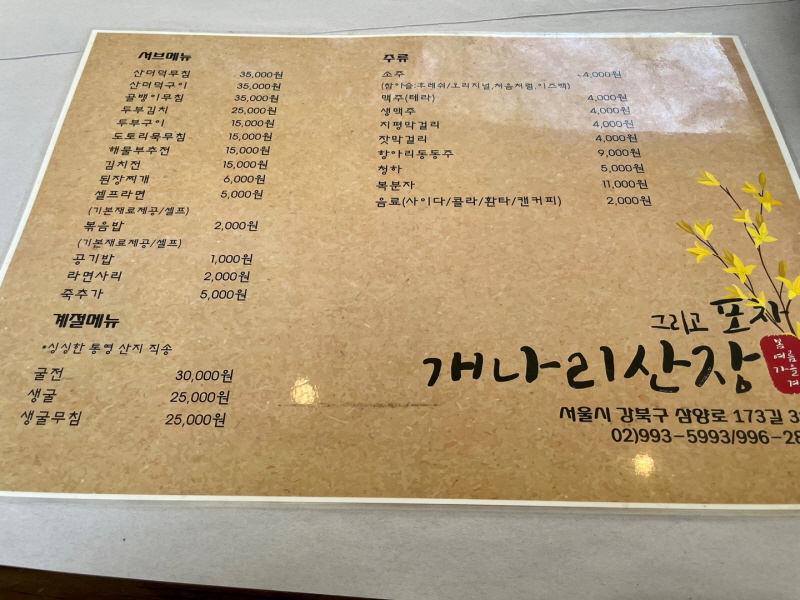 서브메뉴
산더덕무침 35,000원
산더덕구이 35,000원
골뱅이무침 35,000원
두부김치 25,000원
두부구이 15,000원
도토리묵무침 15,000원
해물부추전 15,000원
김치전 15,000원
된장찌개 6,000원
셀프라면 5,000원
(기본재료제공/셀프)
볶음밥 2,000원
(기본재료제공/셀프)
공기밥 1,000원
라면사리 2,000원
죽추가 5,000원
계절메뉴
•싱싱한 통영 산지 직송
굴전 30,000원
생굴 25,000원
생굴무침 25,000원
주류
소주 4,000원
(참이슬:후레쉬/오리지널,처음처럼,이즈백)
맥주(테라) 4,000원
생맥주 4,000원
지평막걸리 4,000원
잣막걸리 4,000원
항아리동동주 9,000원
청하 5,000원
복분자 11,000원
음료(사이다/콜라/환타/캔커피) 2,000원
그리고 포차
개나리산장
봄여름가을겨
서울시 강북구 삼양로 173길 3
02)993-5993/996-28